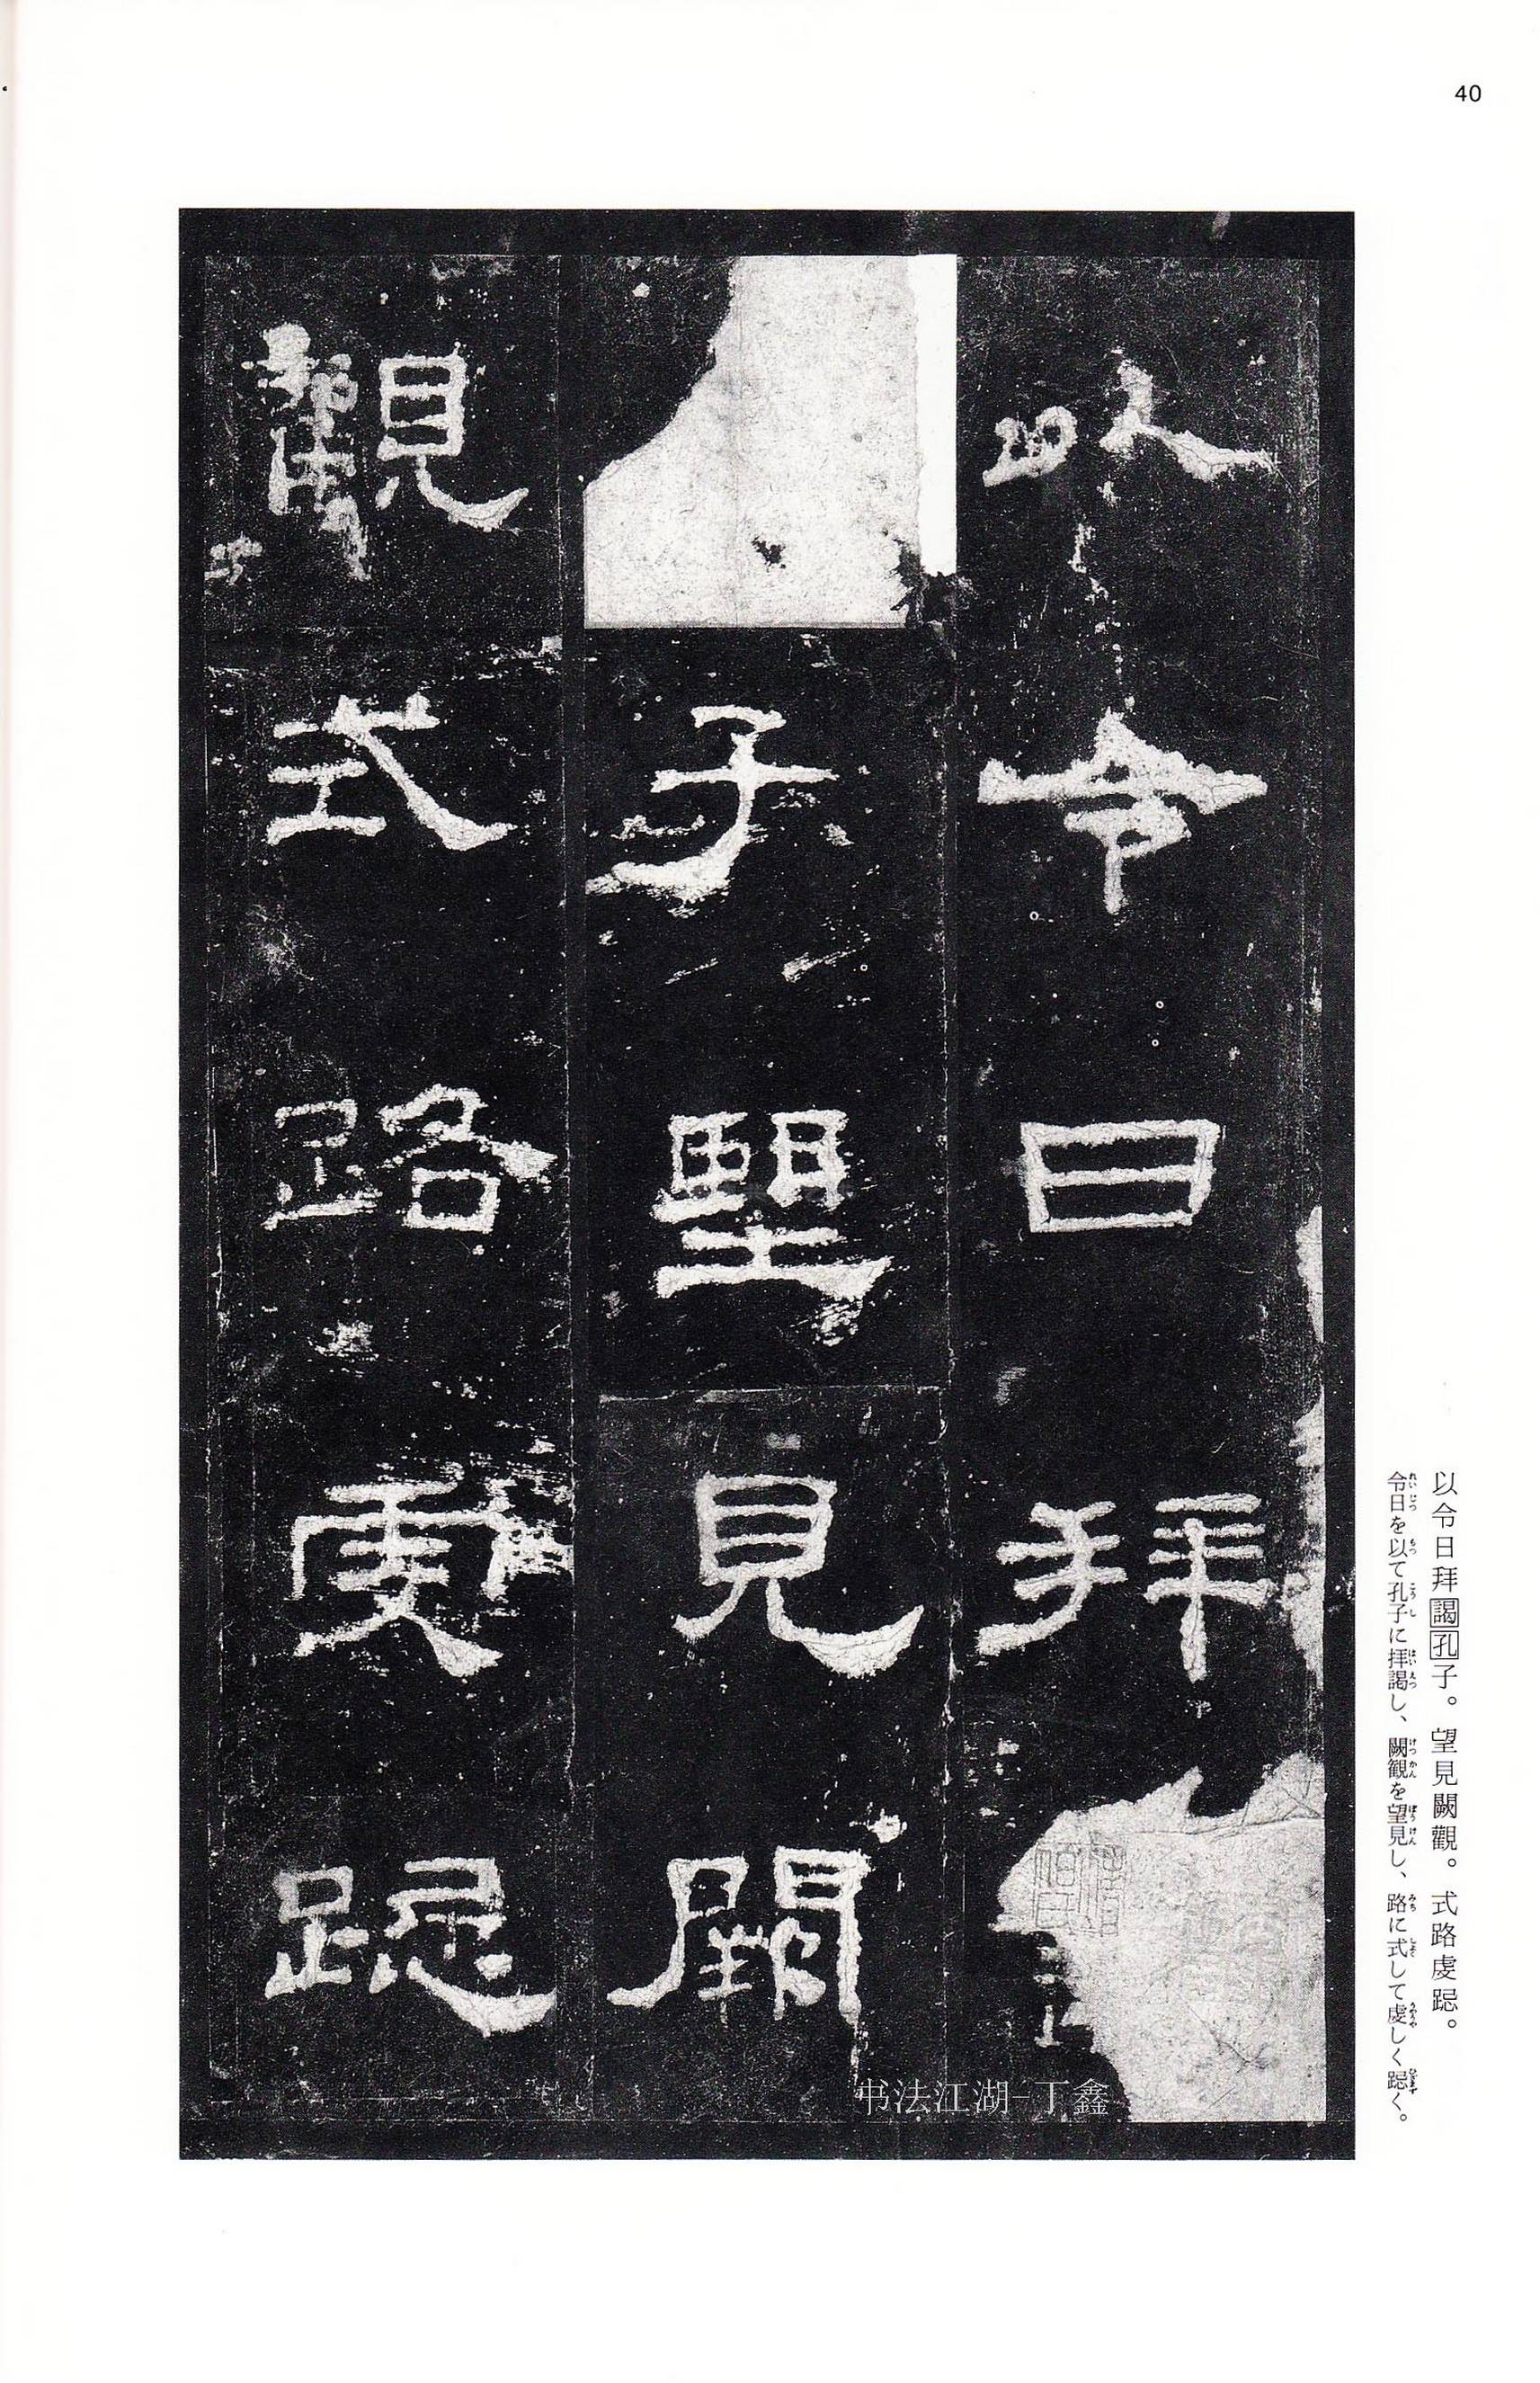 40
以令日拜
子望見闕
觀式路虔跽
以令日拜謁孔子。望見闕觀。式路虔跽。
令日を以て孔子に拝謁し、闕観を望見し、路に式して虔しく跽く。
书法江湖-丁鑫